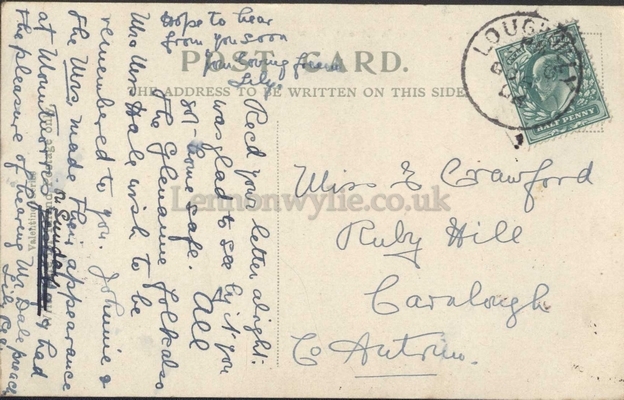 POST CARD.
THE ADDRESS TO BE WRITTEN ON THIS SIDE
LOUGH
HALF PENNY
Miss E Crawford
Ruby Hill
Caralough
Co Antrim.
Lennonwylie.co.uk
Recd your letter alright:
was glad to see by it you
got home safe. All
the Glenanne folk also
Mr & Mrs Dale wish to be
remembered to you. Johnnie &
the Mrs made their appearance
on Sunday
at & had
the pleasure of hearing Mr Dale preach
Hope to hear
from you soon
Your loving friend
Lily.
Valentines Series